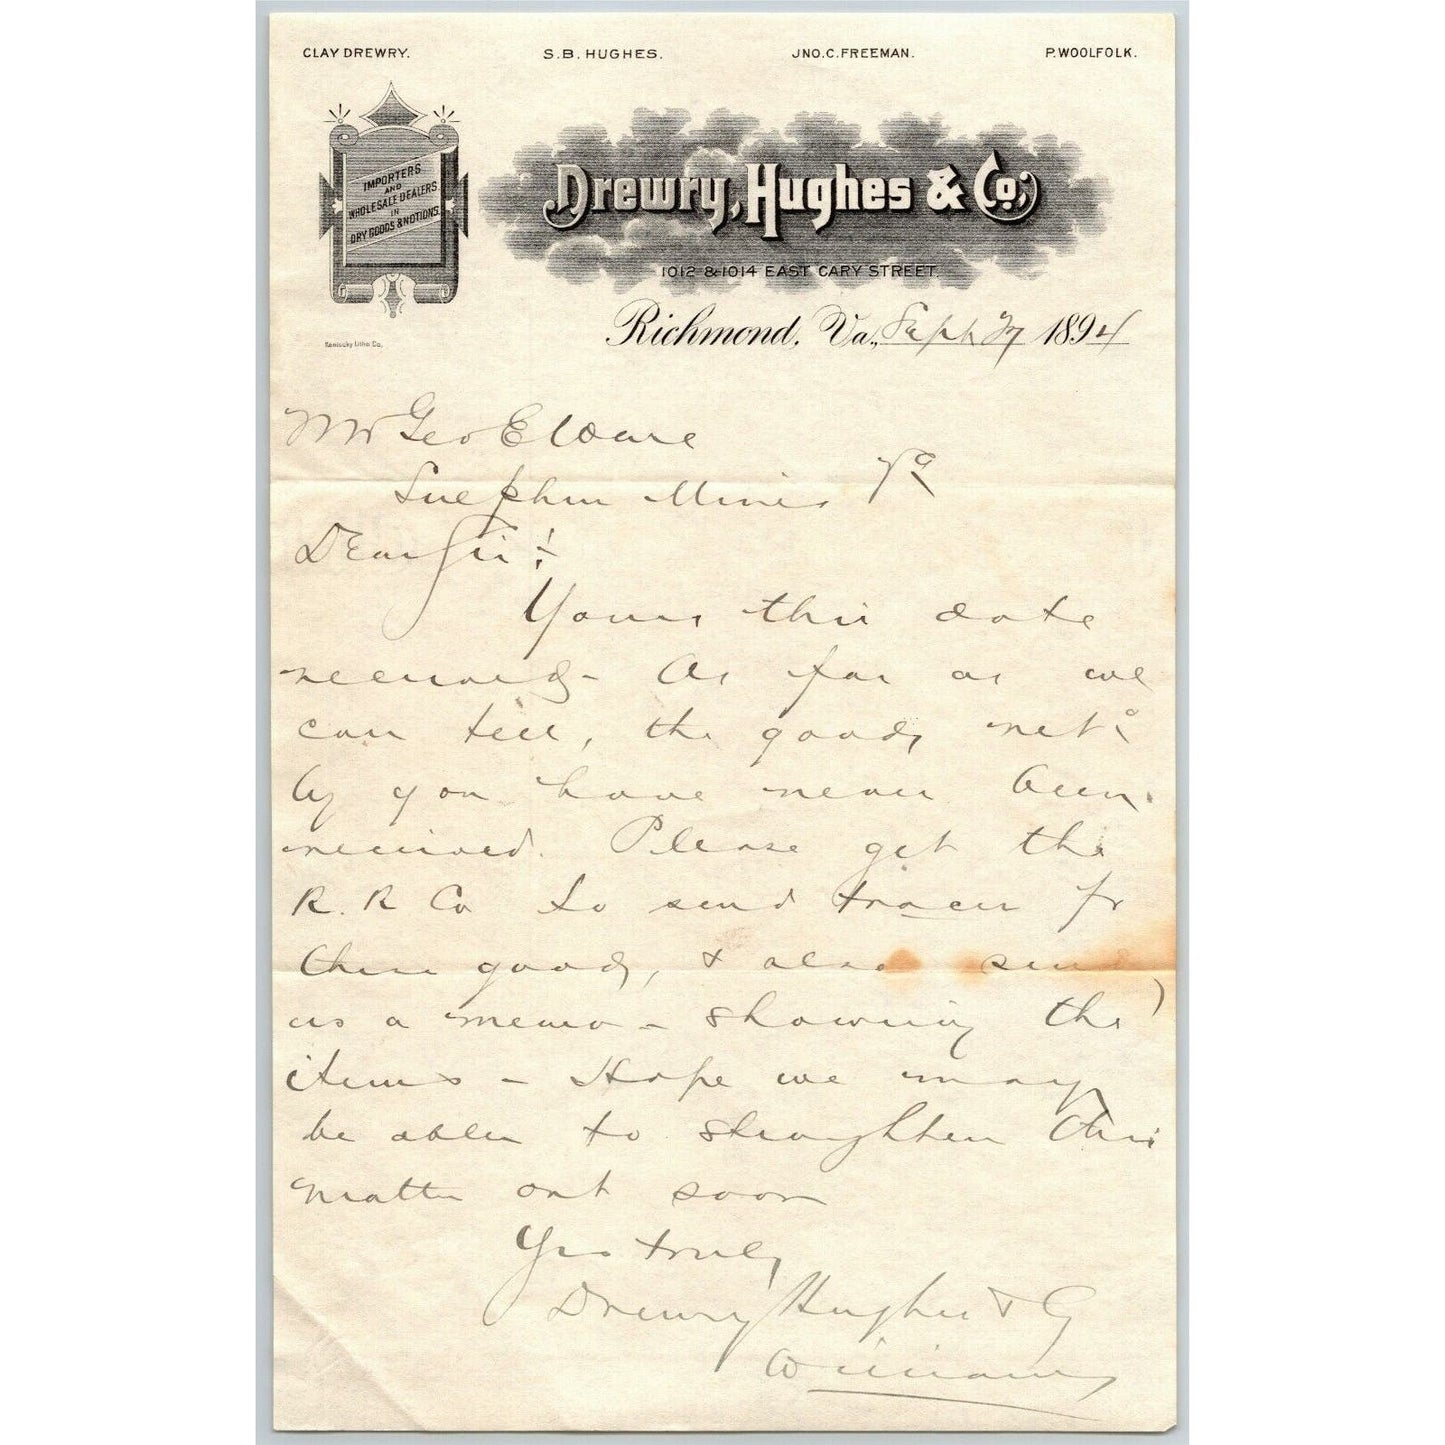 CLAY DREWRY. S.B. HUGHES. JNO. C. FREEMAN. P. WOOLFOLK.
IMPORTERS
AND
WHOLESALE DEALERS
IN
DRY GOODS & NOTIONS.
Drewry, Hughes & Co.,
1012 & 1014 EAST CARY STREET.
Kentucky Litho Co.
Richmond, Va., Sept 27 1894
Mr Geo E Ware
Sulphur Mines Va
Dear Sir:
Yours this date
received - As far as we
can tell, the goods retd
by you have never been
received. Please get the
R. R Co to send tracer fr
these goods, & also send
us a memo - showing the
items - Hope we may
be able to straighten this
matter out soon
Yrs truly
Drewry Hughes & Co
Williams